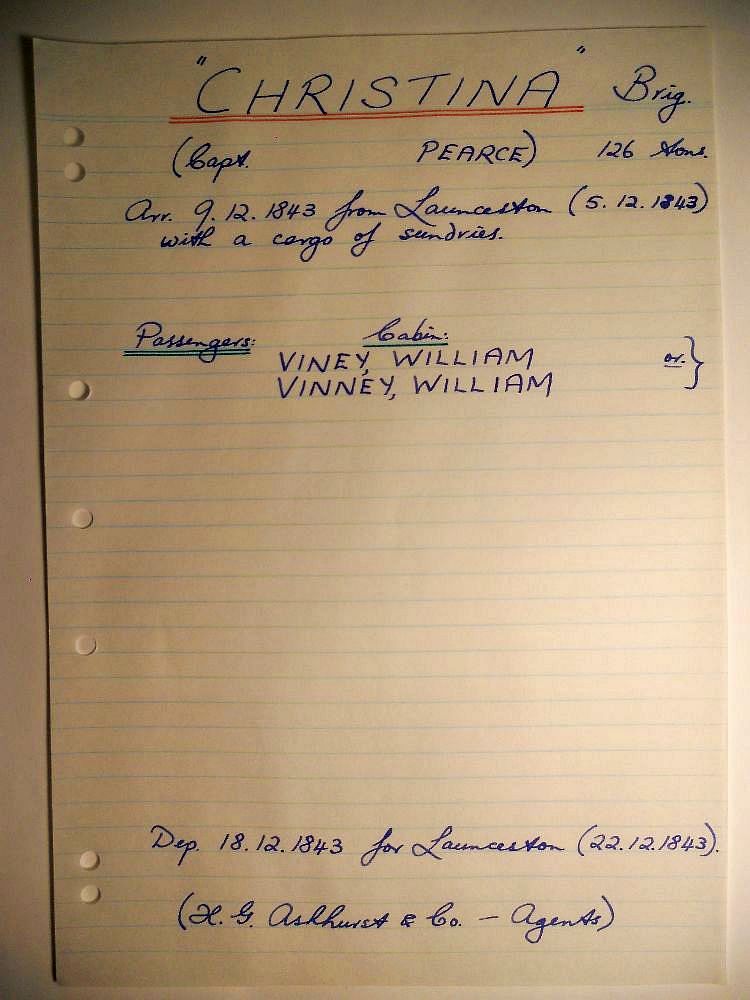 "CHRISTINA" Brig.
(Capt. PEARCE) 126 tons.
Arr. 9.12.1843 from Launceston (5.12.1843)
with a cargo of sundries.
Passengers: Cabin:
VINEY, WILLIAM or }
VINNEY, WILLIAM
Dep. 18.12.1843 for Launceston (22.12.1843).
(H. G. Ashhurst & Co. – Agents)